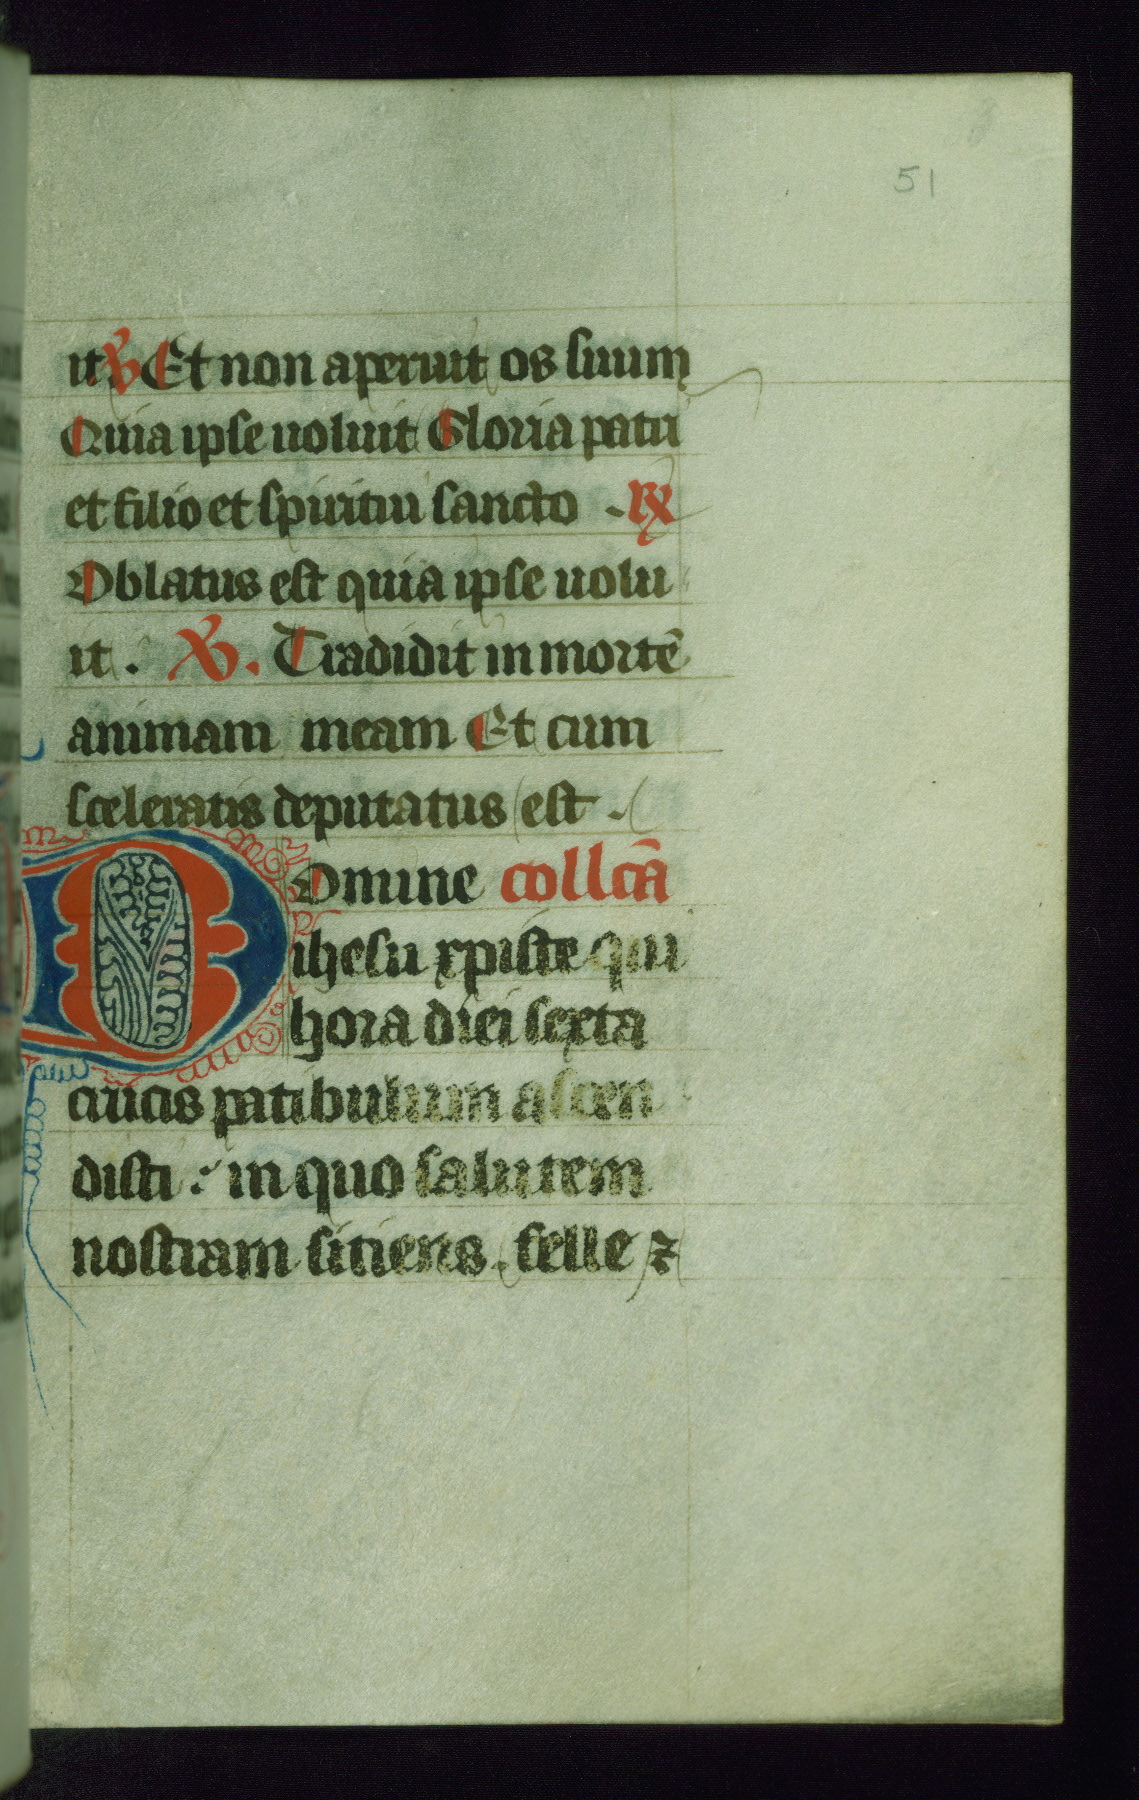 51
it. V Et non aperuit os suum
Quia ipse uoluit Gloria patri
et filio et spiritui sancto . R
Oblatus est quia ipse uolu
it . V. Tradidit in mortē
animam meam Et cum
sceleratis deputatus est .
Domine collcā
ihesu xpiste qui
hora diei sexta
crucis patibulum ascen
disti : in quo salutem
nostram sitiens . felle ⁊